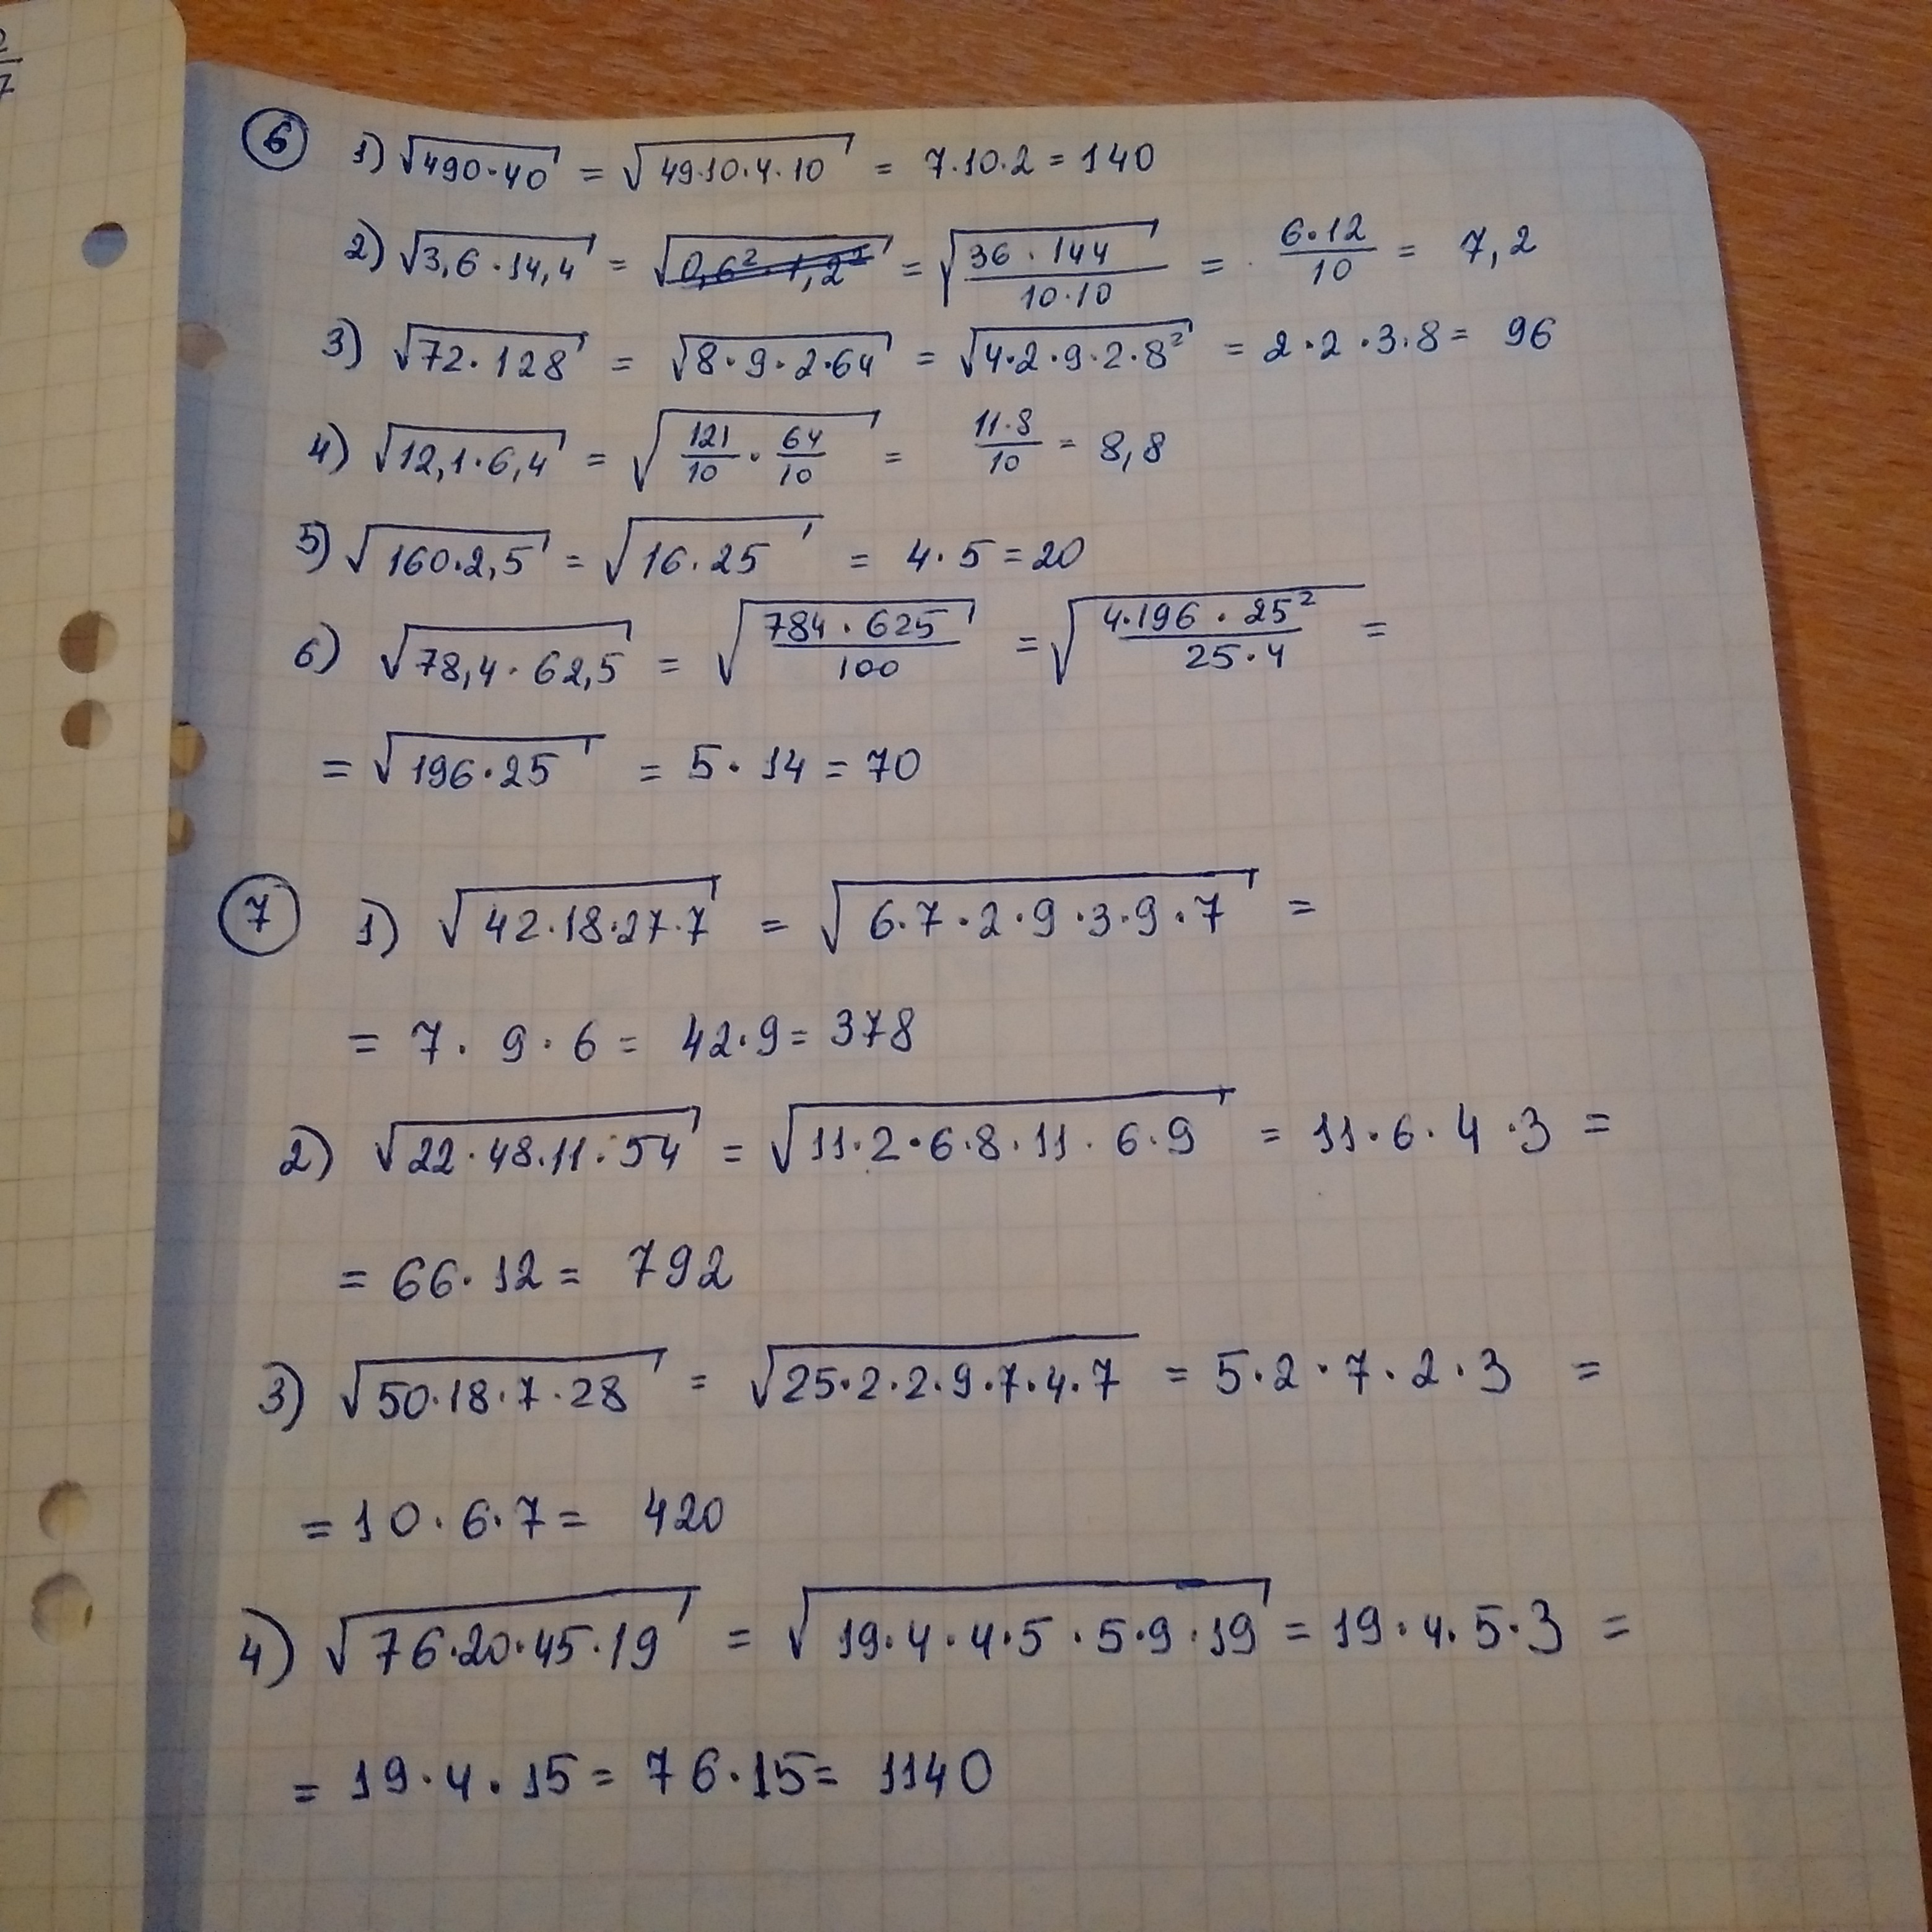 2/7
⑥ 1) √(490·40) = √(49·10·4·10) = 7·10·2 = 140
2) √(3,6·14,4) = √(0,6²·1,2²) = √((36·144)/(10·10)) = (6·12)/10 = 7,2
3) √(72·128) = √(8·9·2·64) = √(4·2·9·2·8²) = 2·2·3·8 = 96
4) √(12,1·6,4) = √(121/10·64/10) = (11·8)/10 = 8,8
5) √(160·2,5) = √(16·25) = 4·5 = 20
6) √(78,4·62,5) = √((784·625)/100) = √((4·196·25²)/(25·4)) =
= √(196·25) = 5·14 = 70
⑦ 1) √(42·18·27·7) = √(6·7·2·9·3·9·7) =
= 7·9·6 = 42·9 = 378
2) √(22·48·11·54) = √(11·2·6·8·11·6·9) = 11·6·4·3 =
= 66·12 = 792
3) √(50·18·7·28) = √(25·2·2·9·7·4·7) = 5·2·7·2·3 =
= 10·6·7 = 420
4) √(76·20·45·19) = √(19·4·4·5·5·9·19) = 19·4·5·3 =
= 19·4·15 = 76·15 = 1140